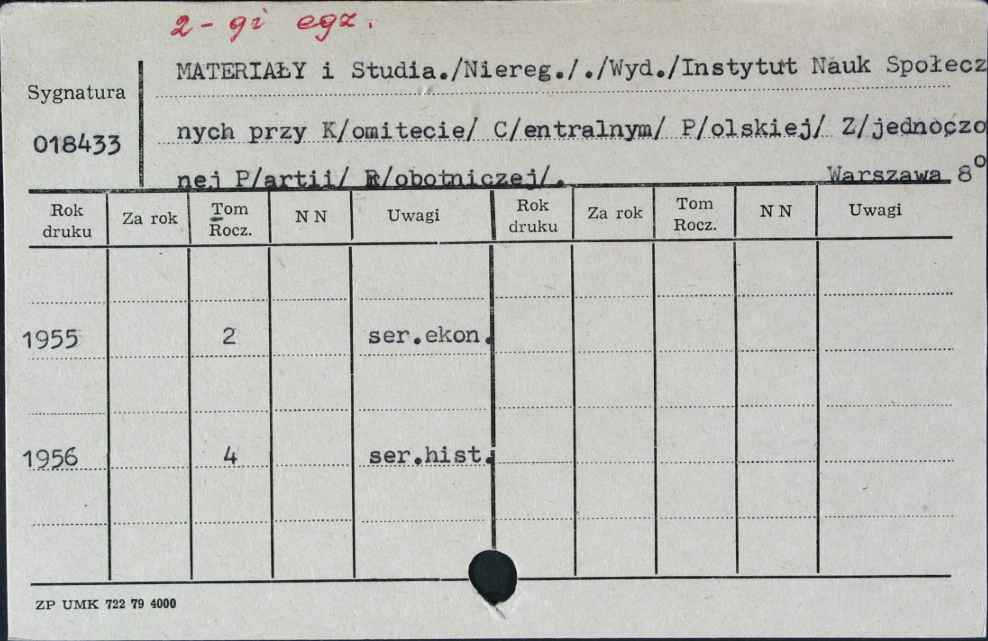 2-gi egz.
MATERIAŁY i Studia./Niereg./. /Wyd./Instytut Nauk Społecz
Sygnatura
018433
nych przy K/omitecie/ C/entralnym/ P/olskiej/ Z/jednoczo
nej P/artii/ R/obotniczej/. Warszawa 8°
Rok druku Za rok Tom Rocz. N N Uwagi Rok druku Za rok Tom Rocz. N N Uwagi
1955 2 ser.ekon.
1956 4 ser.hist.
ZP UMK 722 79 4000